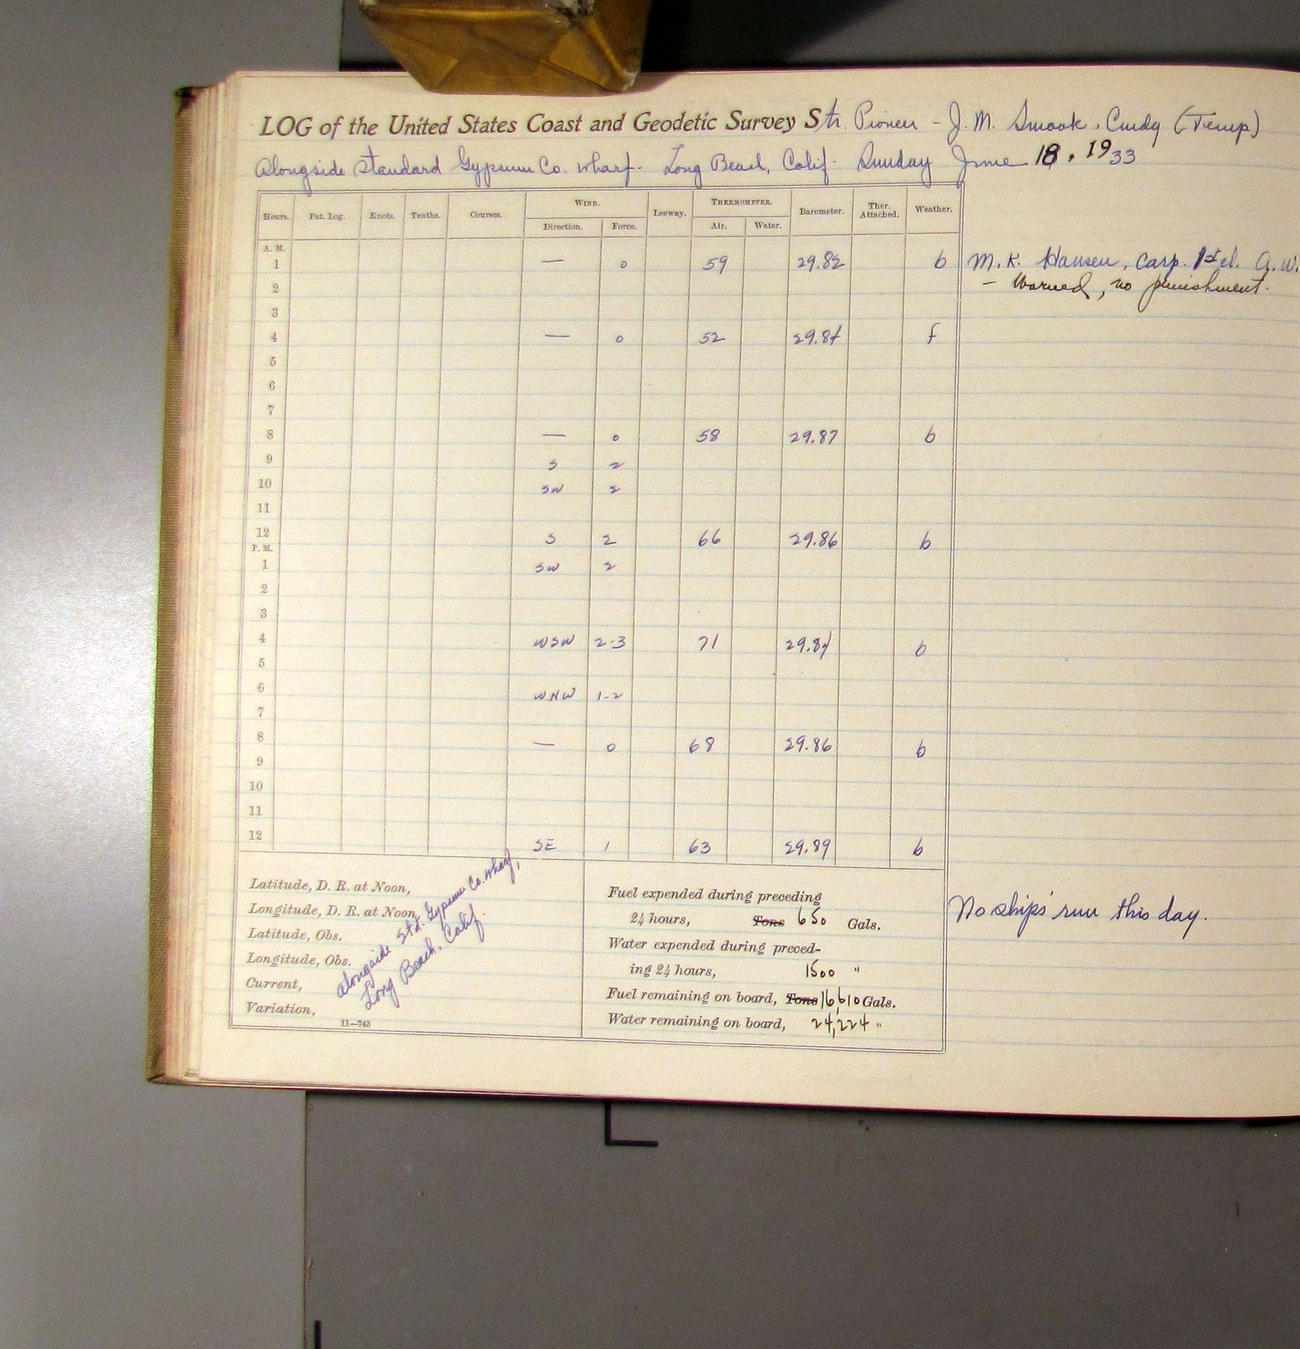 LOG of the United States Coast and Geodetic Survey Str. Pioneer - J. M. Smook, Cmdg (Temp)
Alongside Standard Gypsum Co. Wharf - Long Beach, Calif. Sunday June 18, 1933
Hours. Pat. Log. Knots. Tenths. Courses. WIND. Leeway. THERMOMETER. Barometer. Ther. Attached. Weather.
Direction. Force. Air. Water.
A. M.
1 — 0 59 29.82 b M. K. Hansen, Carp. 1st cl. A.W.
2 - Warned, no punishment.
3
4 — 0 52 29.84 f
5
6
7
8 — 0 58 29.87 b
9 S 2
10 SW 2
11
12 S 2 66 29.86 b
P. M.
1 SW 2
2
3
4 WSW 2-3 71 29.84 b
5
6 WNW 1-2
7
8 — 0 68 29.86 b
9
10
11
12 SE 1 63 29.89 b
Latitude, D. R. at Noon,
Longitude, D. R. at Noon,
Latitude, Obs.
Longitude, Obs.
Current,
Variation,
Alongside Std. Gypsum Co. Wharf,
Long Beach, Calif.
11—743
Fuel expended during preceding
24 hours, Tons 650 Gals.
Water expended during preced-
ing 24 hours, 1500 "
Fuel remaining on board, Tons 16,610 Gals.
Water remaining on board, 24,224 "
No ships' run this day.